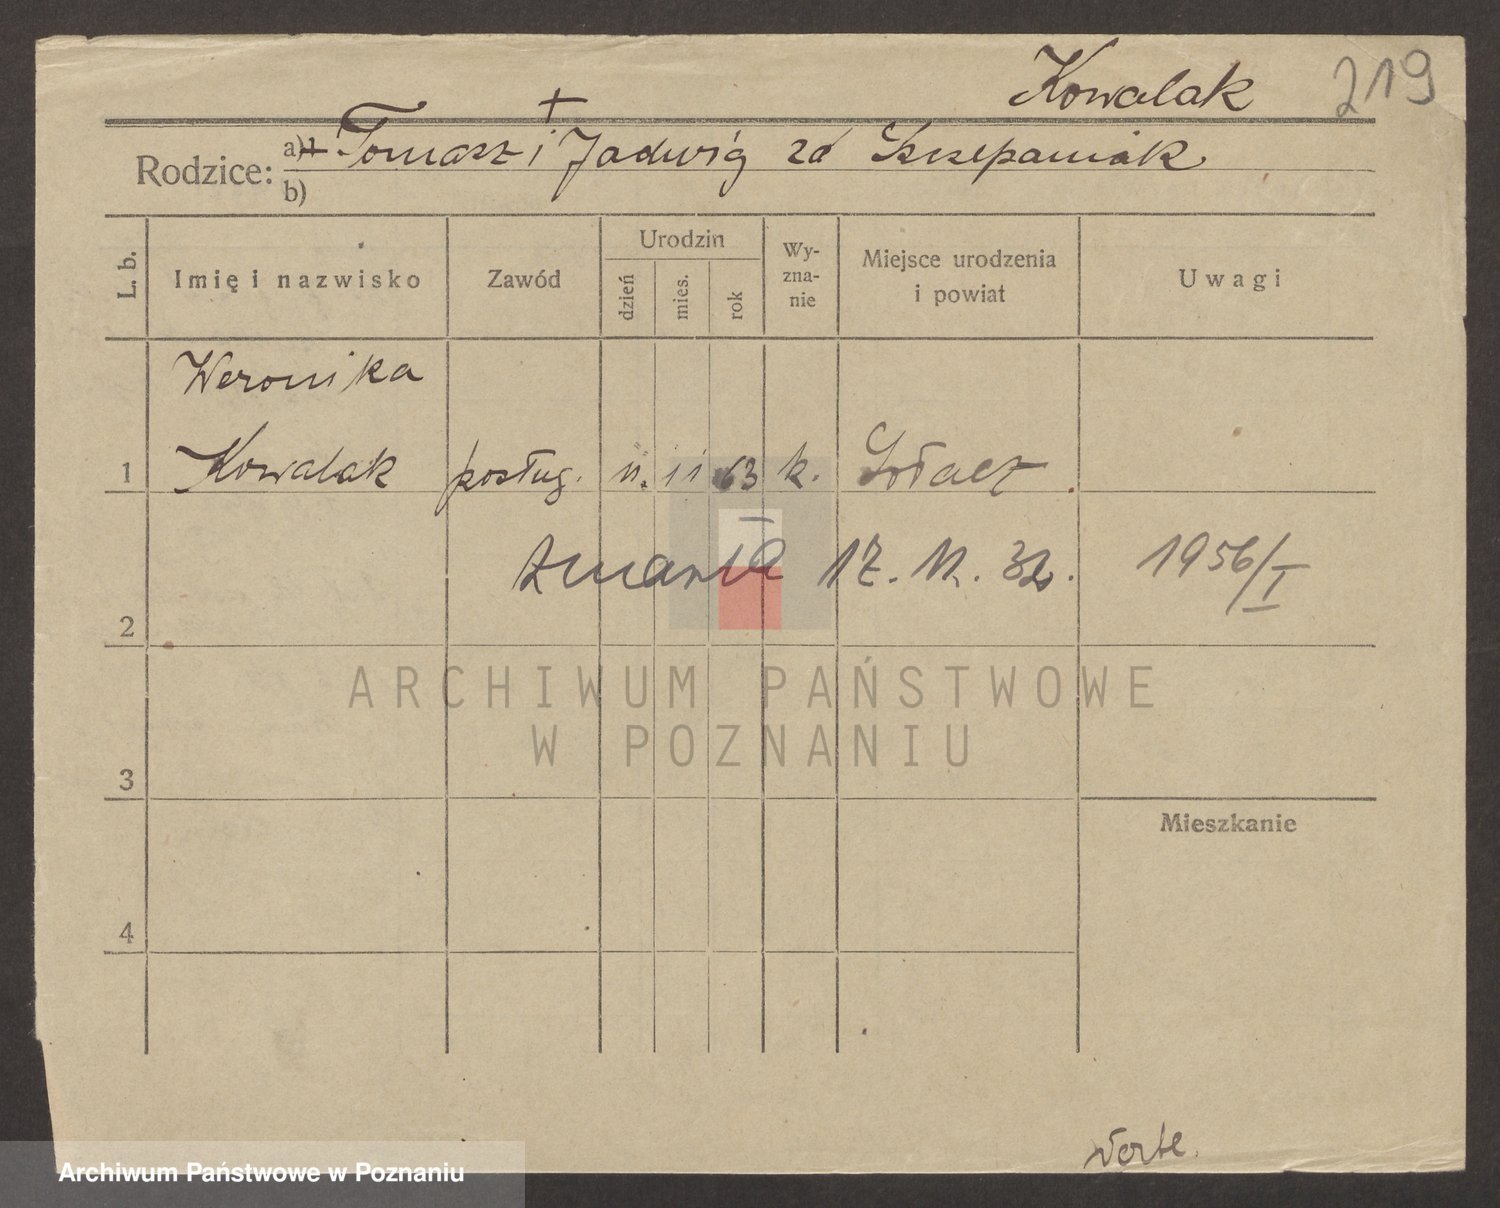 Kowalak 219
Rodzice: a) † Tomasz i † Jadwig zd Szczepaniak
b)
L. b. Imię i nazwisko Zawód Urodzin dzień mies. rok Wy-zna-nie Miejsce urodzenia i powiat Uwagi
Weronika
1 Kowalak posług. 11. 11 63 k. Sołacz
zmarła 17. 11. 32. 1956/I
2
ARCHIWUM PAŃSTWOWE
W POZNANIU
3
Mieszkanie
4
Verte.
Archiwum Państwowe w Poznaniu